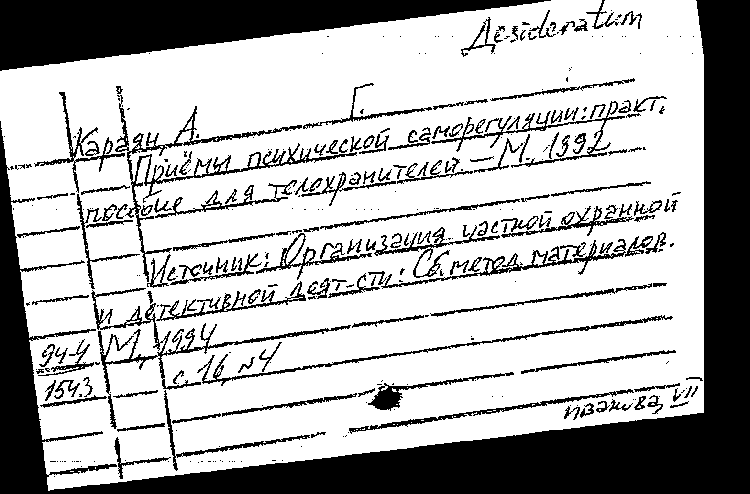 Desideratum
Караян, А. Г.
Приёмы психической саморегуляции: практ.
пособие для телохранителей. – М., 1992
Источник: Организация частной охранной
и детективной деят-сти: Сб. метод. материалов.
94-4 М., 1994
1543 с. 16, №4
Иванова, VII